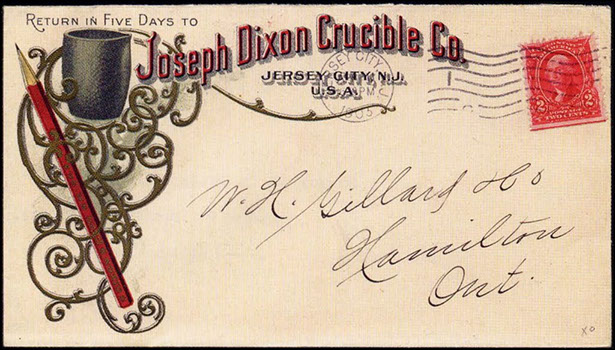 RETURN IN FIVE DAYS TO
JOSEPH DIXON CRUCIBLE CO.
JERSEY CITY, N.J.
U.S.A.
SEY CITY, N.J.
PM
2 2
TWO CENTS
W. H. Gillard & Co
Hamilton
Ont.
XO